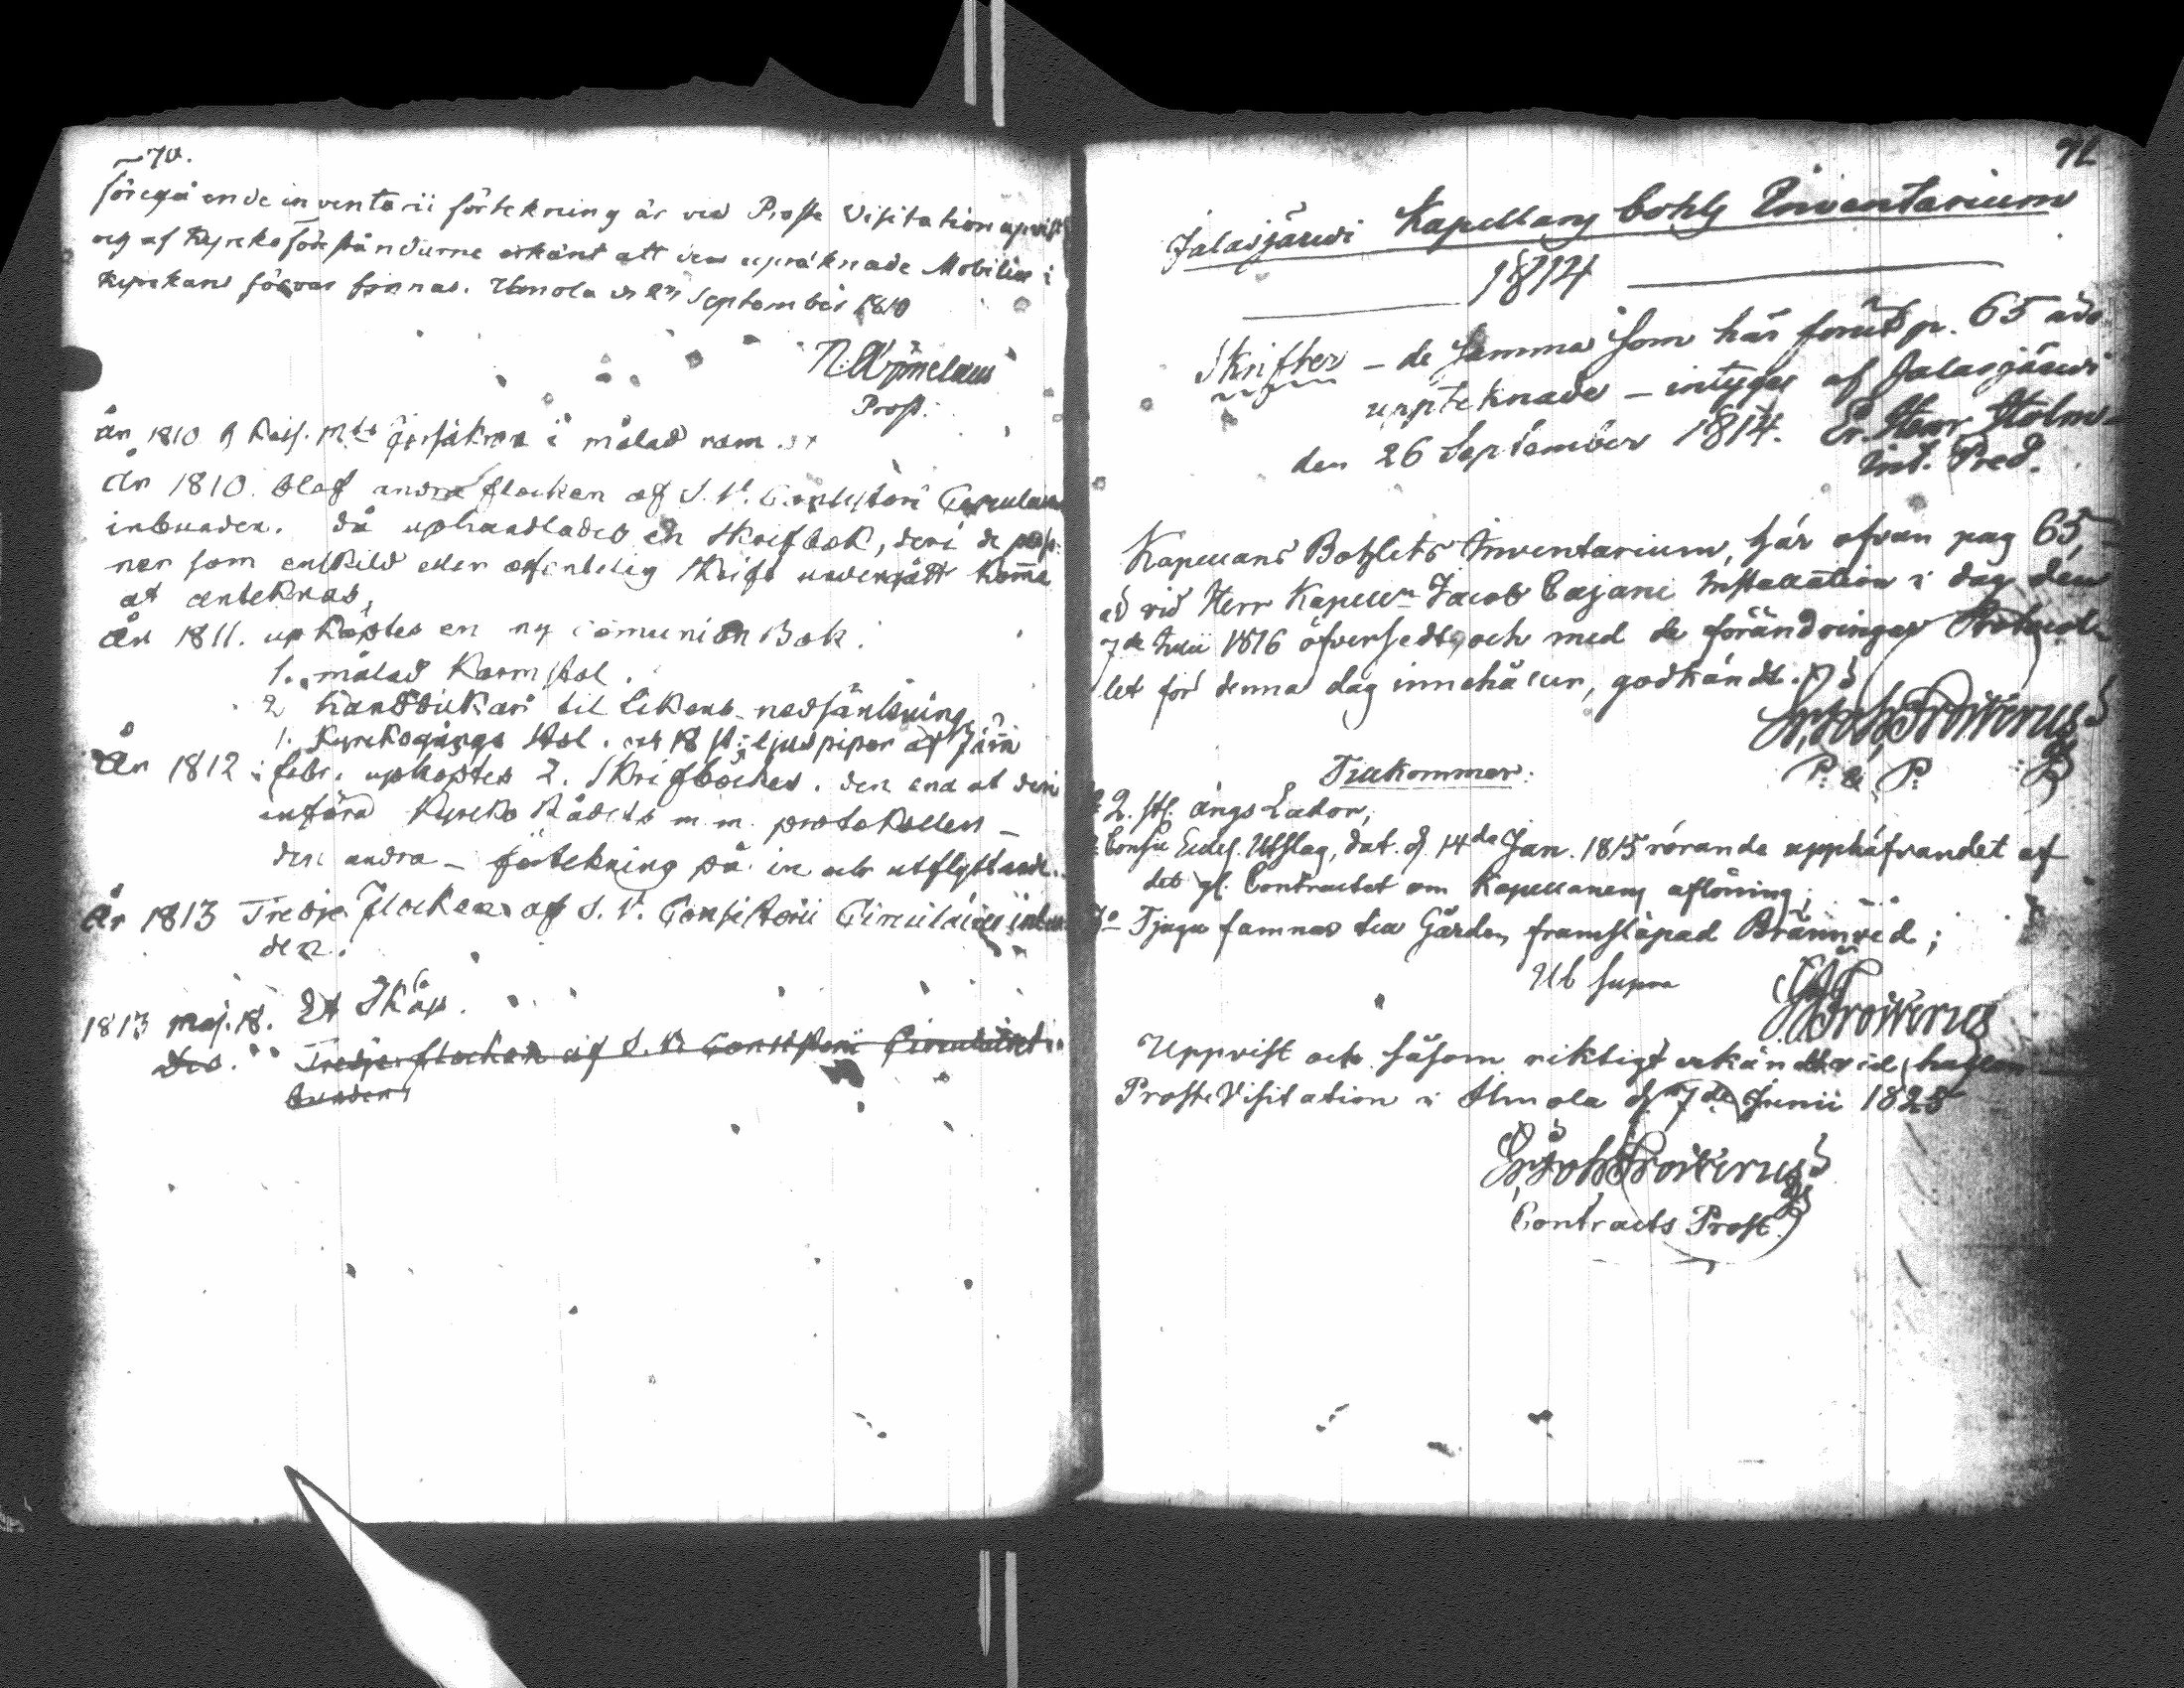 70.
föregående inventarii förtekning är vid Prosta Visitation upvist
og af Kyrkoföreståndarne erkänt att den upräknade Mobilier i
Kyrkans förvar finnas. Ilmola d. September 1810
Prost.
År 1810 Kejs. Mts försäkran i målad ram.
År 1810. blef andra flocken af S. V. Consistorii Circulairer
inbunden. då uphandlades en Skrifbok, deri de
ner som enskild eller offentelig Skrift undergått komma
at anteknas,
År 1811. upköptes en ny Communion Bok.
1. målad Karmstol.
2 handdukar til likens nedsänkning
1. Kyrkogångs Stol. och 18 st. ljuspipor af Järn
År 1812 i febr. upköptes 2. Skrifböcker. den ena at deri
införa Kyrko Rådets m. m. protokoller –
den andra – förtekning på in och utflyttande.
År 1813 Tredje flocken af S. V. Consistorii Circulairer inbun
den.
1813 Maj. 18. Et Skåp.
dto. Tredje flocken af S. V. Consistorii Circulairer in
bunden
71
Jalasjärwi Kapellans bohls Inventarium
1814
Skrifter – de samma som här förut p. 65
uppteknade – intygar af Jalasjärwi
den 26 September 1814. Er. Henr
Pred.
Kapellans Bohlets Inventarium, här ofvan pag 65,
vid Herr Kapell:n Jacob Cajani Installation i dag den
7de Julii 1816 öfversedt, och med de förändringar Protocol-
let för denna dag innehåller, godkändt.
P. & P.
Tillkommer:
2. st. ängs Lador,
Eccles. Utslag, dat. d. 14de Jan. 1815 rörande upphäfvandet af
det gl. Contractet om Kapellanens aflöning;
Tjugu famnar till Gården framsläpad Brännved;
Ut supra
Frosterus
Uppvist och såsom riktigt erkändt vid hållen
Proste Visitation i Ilmola d. 7de Junii 1828
Joh Frosterus
Contracts Prost.